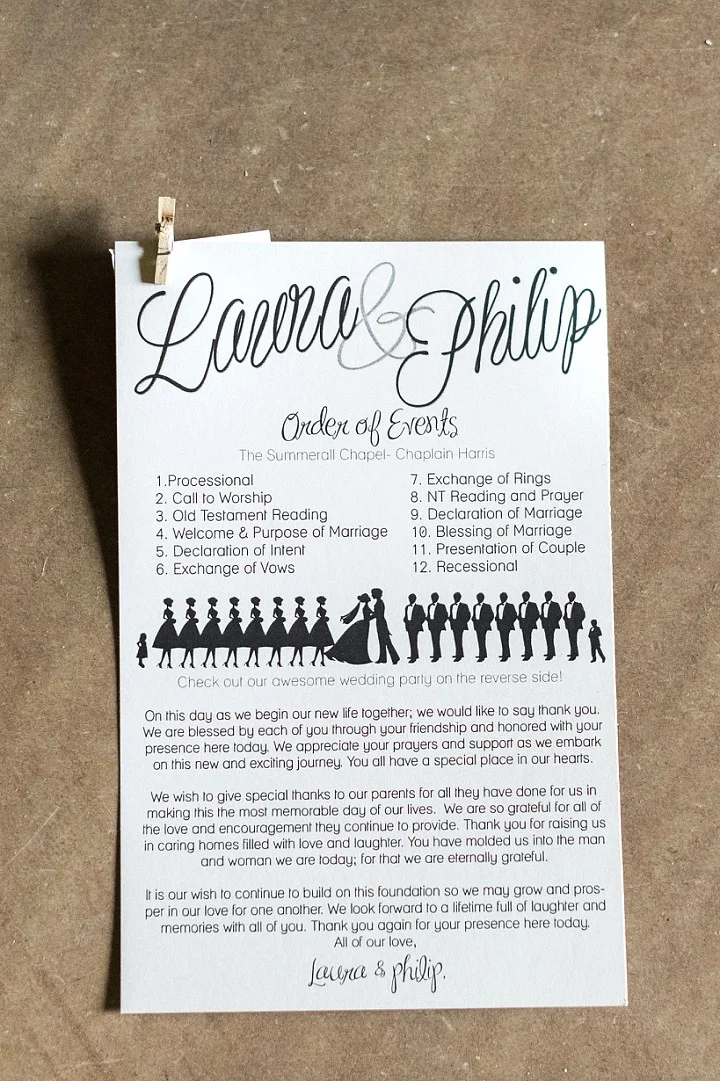 Laura & Philip
Order of Events
The Summerall Chapel- Chaplain Harris
1.Processional
2. Call to Worship
3. Old Testament Reading
4. Welcome & Purpose of Marriage
5. Declaration of Intent
6. Exchange of Vows
7. Exchange of Rings
8. NT Reading and Prayer
9. Declaration of Marriage
10. Blessing of Marriage
11. Presentation of Couple
12. Recessional
Check out our awesome wedding party on the reverse side!
On this day as we begin our new life together; we would like to say thank you.
We are blessed by each of you through your friendship and honored with your
presence here today. We appreciate your prayers and support as we embark
on this new and exciting journey. You all have a special place in our hearts.
We wish to give special thanks to our parents for all they have done for us in
making this the most memorable day of our lives.  We are so grateful for all of
the love and encouragement they continue to provide. Thank you for raising us
in caring homes filled with love and laughter. You have molded us into the man
and woman we are today; for that we are eternally grateful.
It is our wish to continue to build on this foundation so we may grow and pros-
per in our love for one another. We look forward to a lifetime full of laughter and
memories with all of you. Thank you again for your presence here today.
All of our love,
Laura & philip.